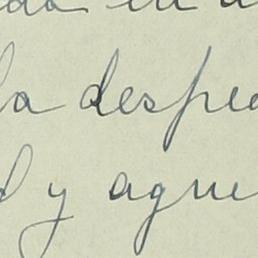 en
la despe
d y ague